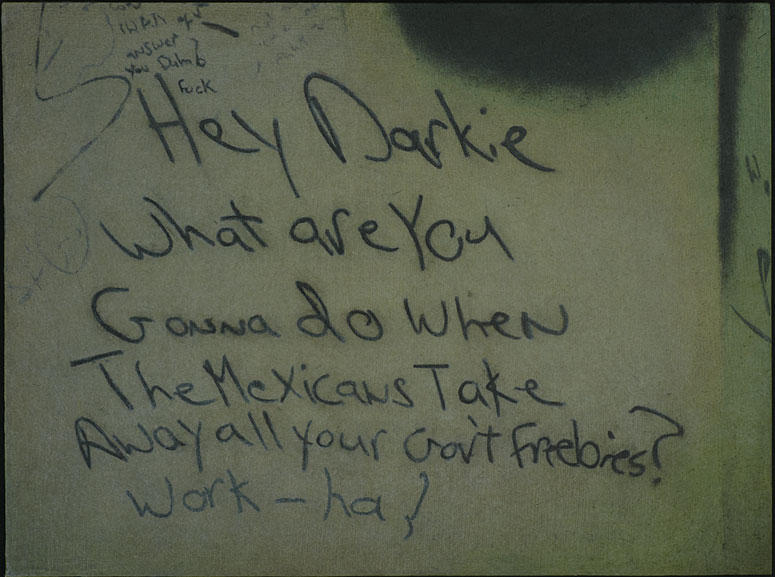 answer?
you Dumb
Fuck
Hey Darkie
What are You
Gonna do When
The Mexicans Take
Away all your Gov't freebies?
Work - ha!